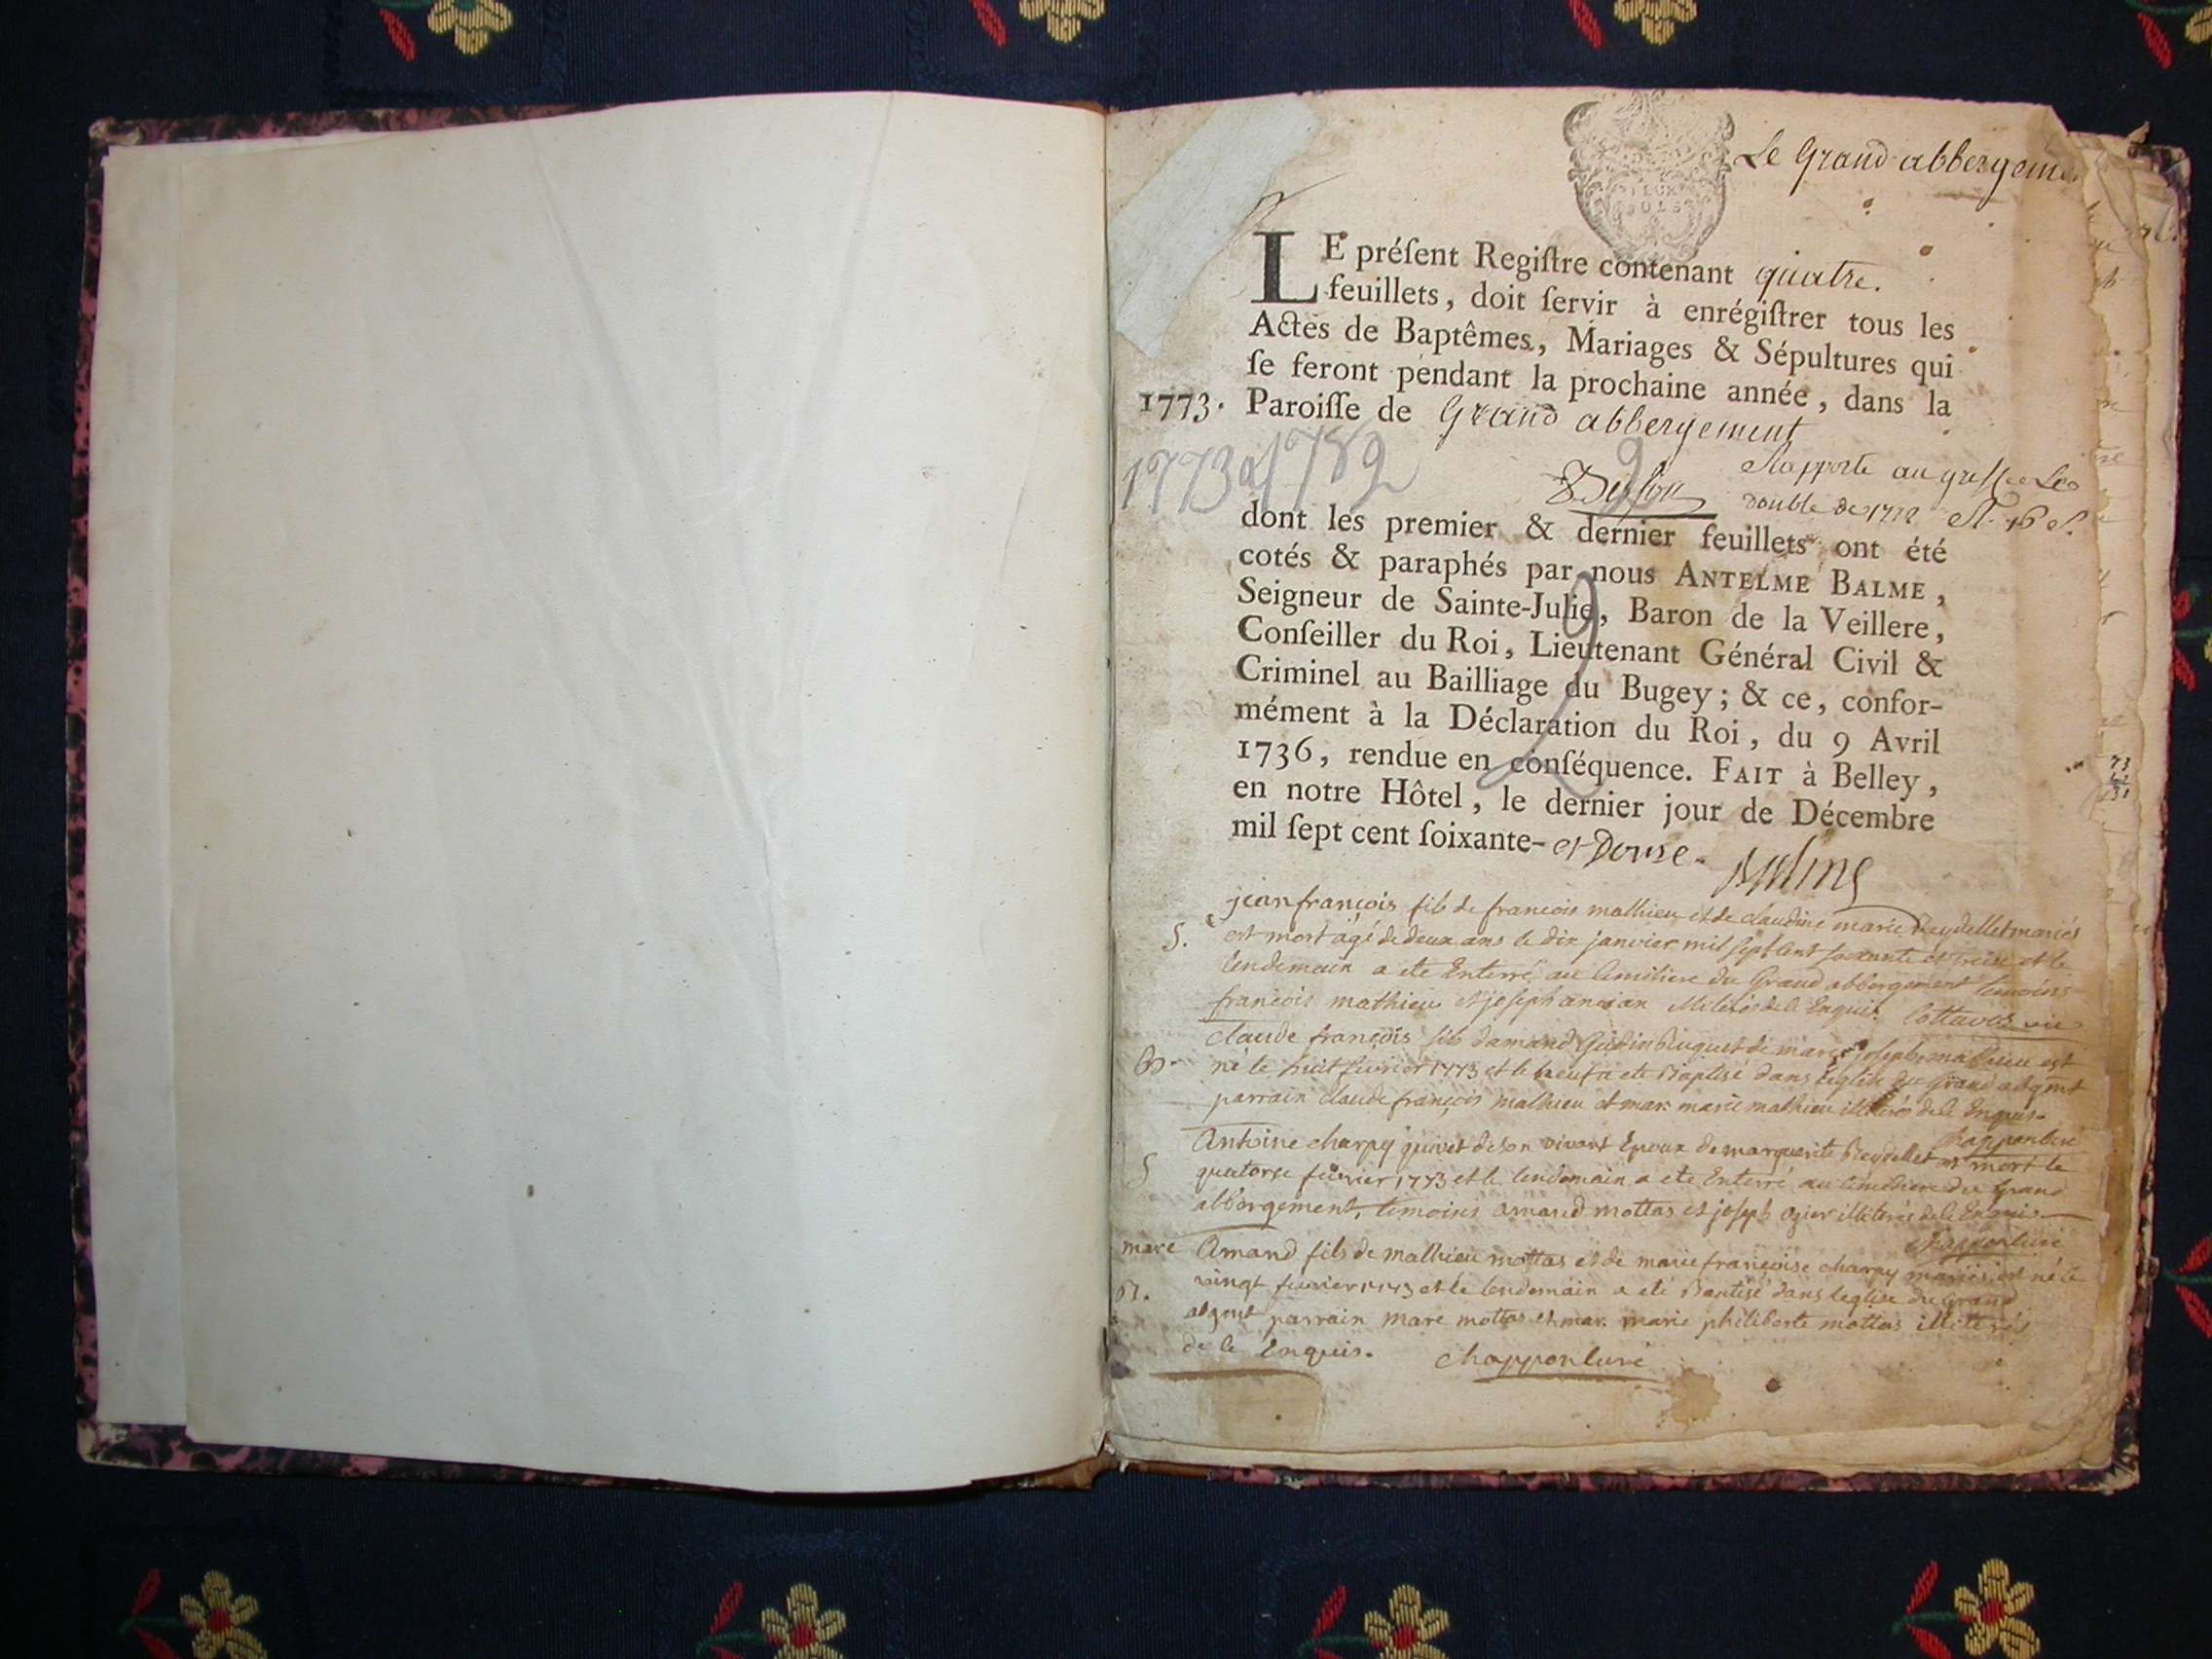 Le Grand abbergem
LE préſent Regiſtre contenant quatre.
feuillets, doit ſervir à enrégiſtrer tous les
Actes de Baptêmes, Mariages & Sépultures qui
ſe feront pendant la prochaine année, dans la
1773. Paroiſſe de Grand abbergement
1773 a 1782
Rapporté au greffe Le
double de 1772
dont les premier & dernier feuillets ont été
cotés & paraphés par nous ANTELME BALME,
Seigneur de Sainte-Julie, Baron de la Veillere,
Conſeiller du Roi, Lieutenant Général Civil &
Criminel au Bailliage du Bugey; & ce, confor-
mément à la Déclaration du Roi, du 9 Avril
1736, rendue en conſéquence. FAIT à Belley,
en notre Hôtel, le dernier jour de Décembre
mil ſept cent ſoixante- et Douze.
Balme
jean françois fils de francois mathieu et de claudine marie Reydellet mariés
S. est mort agé de deux ans le dix janvier mil sept cent soixante et treize et le
lendemain a ete Enterré au Cimitiere du Grand abbergement temoins
francois mathieu et joseph illiterés de le Enquis
claude françois fils damand de marie josephe mathieu est
B. né le huit fevrier 1773 et le neuf a ete Baptisé dans leglise du Grand abgmt
parrain claude françois mathieu et mar. marie mathieu illiterés de le Enquis.
chapponluré
Antoine charpy de son vivant Epoux de marguerite Reydellet est mort le
S quatorze fevrier 1773 et le lendemain a ete Enterré au cimitiere du Grand
abbergement, temoins amand mottas et joseph ogier illiterés de le Enquis
chapponluré
marc Amand fils de mathieu mottas et de marie françoise charpy mariés est né le
B. vingt fevrier 1773 et le lendemain a eté Baptisé dans leglise du Grand
abgmt parrain marc mottas et mar. marie philiberte mottas illiterés
de le Enquis. chapponluré